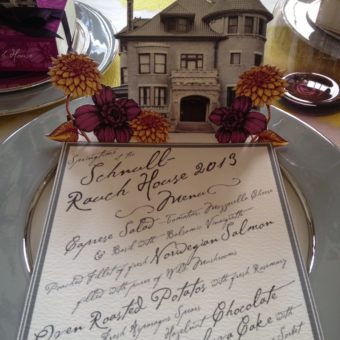 Springtime at the
Schnull-
Rauch House 2013
Menu
Caprese Salad - Tomatoes, Mozzarella Cheese
& Basil with Balsamic Vinaigrette
Poached Fillet of fresh Norwegian Salmon
filled with puree of Wild Mushrooms
Oven Roasted Potatos with fresh Rosemary
Fresh Asparagus Spears
Hazelnut Chocolate
Cake with
Sorbet
House